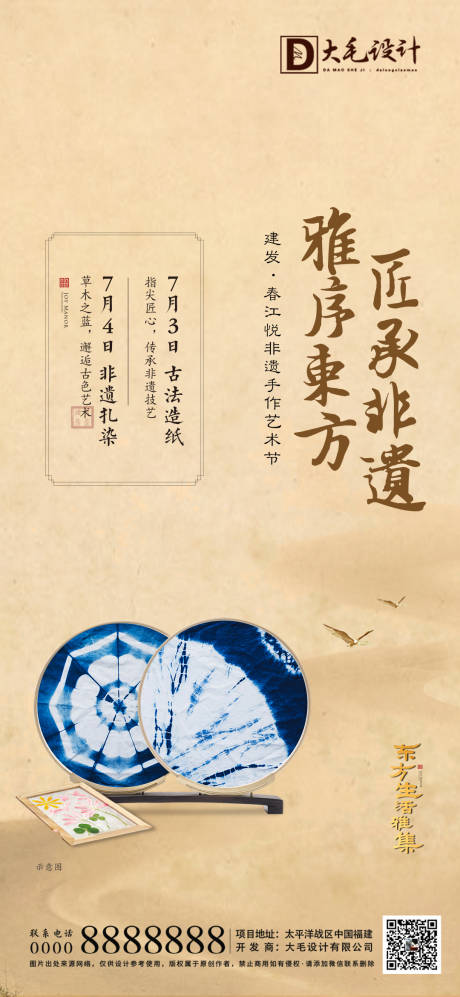 大毛设计
DA MAO SHE JI : dalongxiaomao
匠承非遺
雅序東方
建发·春江悦非遗手作艺术节
7月3日 古法造纸
指尖匠心，传承非遗技艺
7月4日 非遗扎染
草木之蓝，邂逅古色艺术
JOY MANOR
东方生活雅集
示意图
联系电话
0000 8888888
项目地址：太平洋战区中国福建
开发商：大毛设计有限公司
图片出处来源网络，仅供设计参考使用，版权属于原创作者，禁止商用如有侵权·请添加微信联系删除